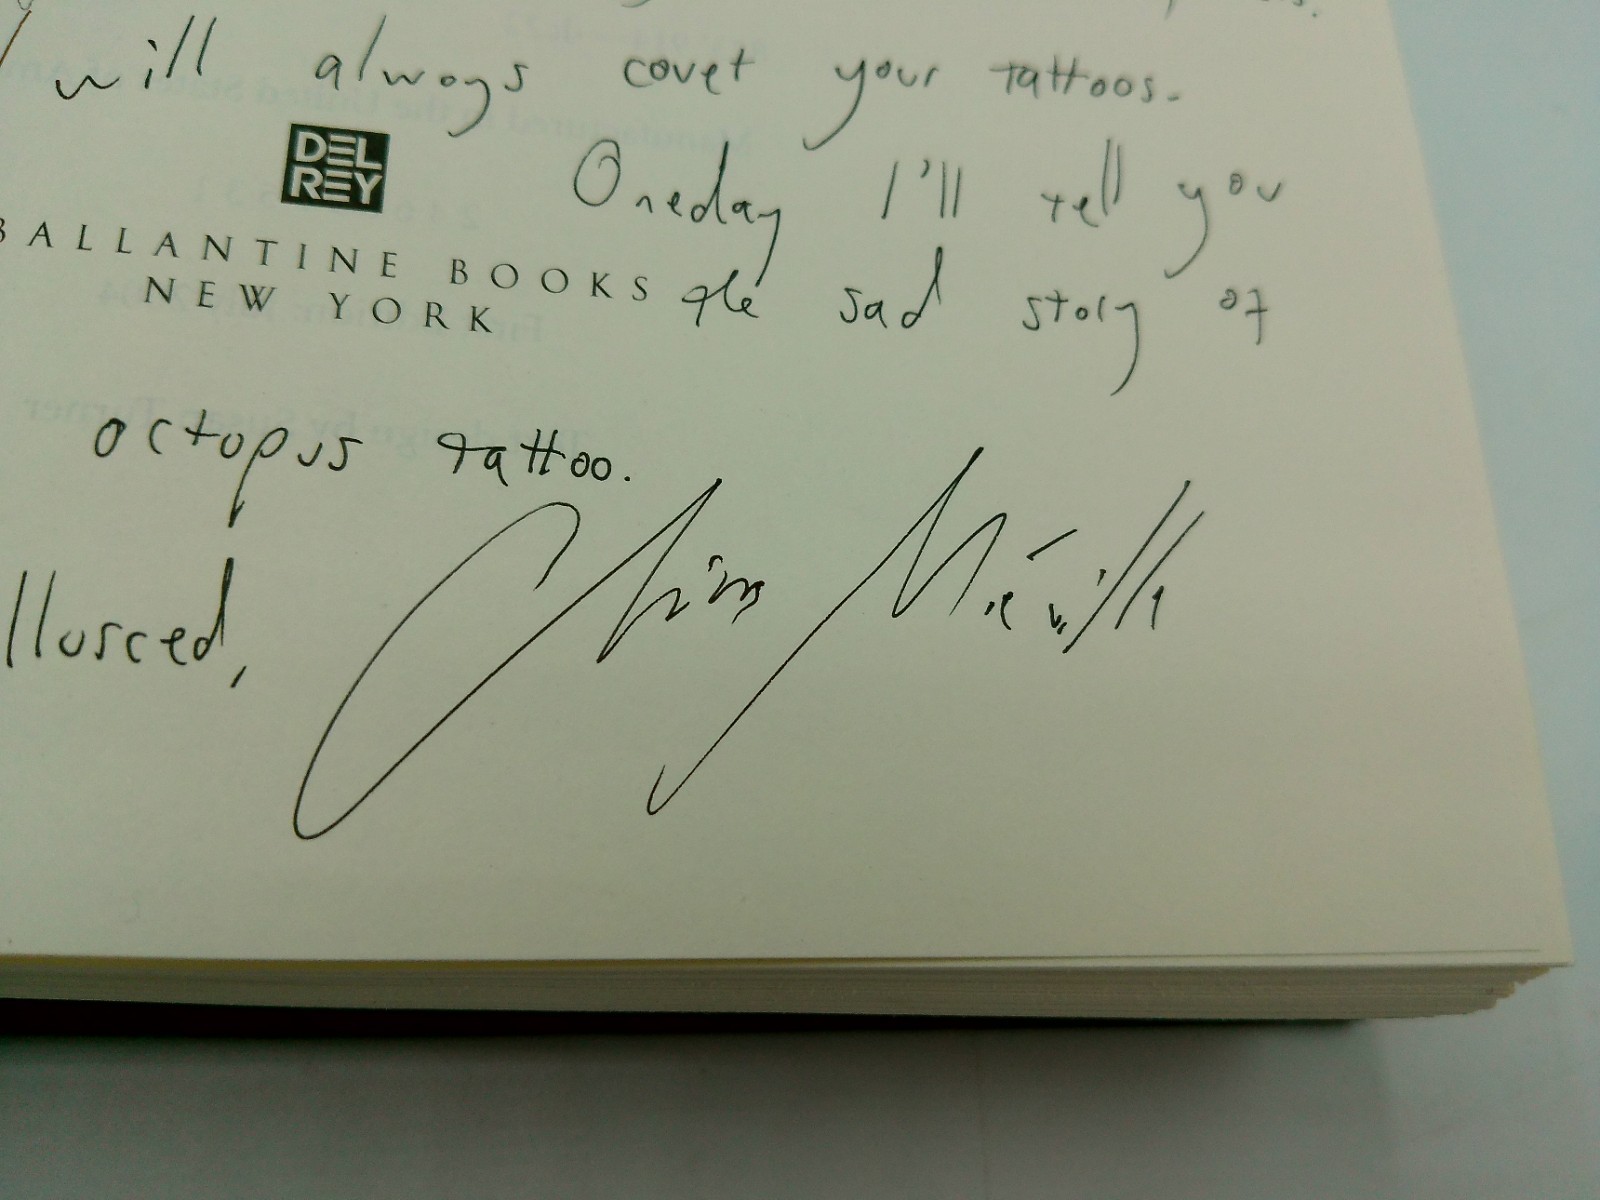 I will always covet your tattoos.
DEL
REY
Oneday I'll tell you
BALLANTINE BOOKS
NEW YORK
the sad story of
octopus tattoo.
llusced,
China Miéville